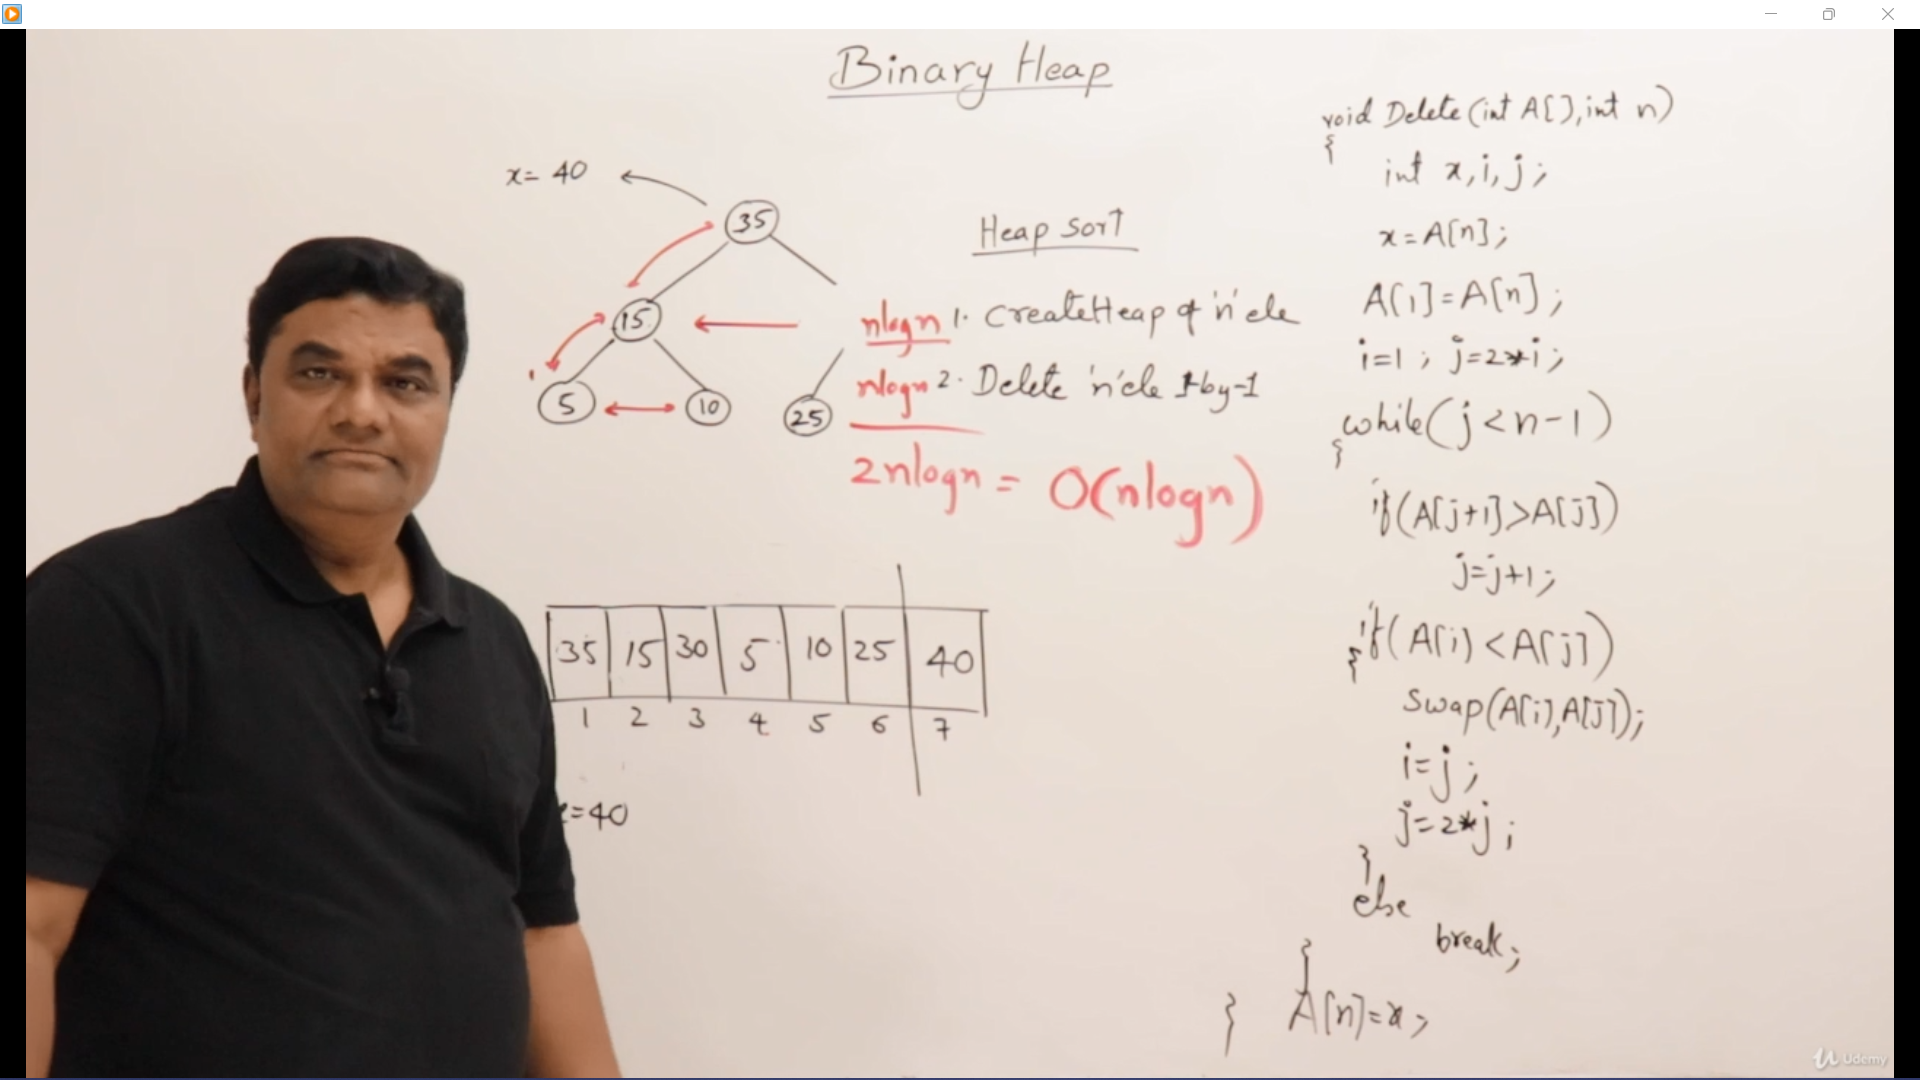 Binary Heap
x= 40
35
15
5
10
25
Heap Sort
nlogn 1. CreateHeap of 'n' ele
nlogn 2. Delete 'n' ele 1-by-1
2nlogn = O(nlogn)
35 15 30 5 10 25 40
1 2 3 4 5 6 7
=40
void Delete(int A[],int n)
{
int x,i,j;
x=A[n];
A[1]=A[n];
i=1; j=2*i;
while(j<n-1)
{
if(A[j+1]>A[j])
j=j+1;
if(A[i]<A[j])
{
Swap(A[i],A[j]);
i=j;
j=2*j;
}
else
break;
}
A[n]=x;
}
Udemy